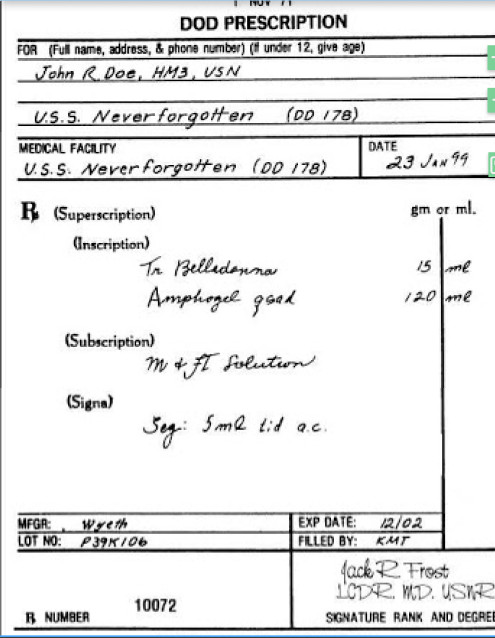 1 NOV 71
DOD PRESCRIPTION
FOR (Full name, address, & phone number) (If under 12, give age)
John R. Doe, HM3, USN
U.S.S. Neverforgotten (DD 178)
MEDICAL FACILITY
U.S.S. Neverforgotten (DD 178)
DATE
23 JAN 99
℞ (Superscription)
gm or ml.
(Inscription)
Tr Belladonna 15 ml
Amphogel qsad 120 ml
(Subscription)
M & FT Solution
(Signa)
Sig: 5ml tid a.c.
MFGR: Wyeth
EXP DATE: 12/02
LOT NO: P39K106
FILLED BY: KMT
Jack R. Frost
LCDR MD USNR
℞ NUMBER 10072
SIGNATURE RANK AND DEGREE